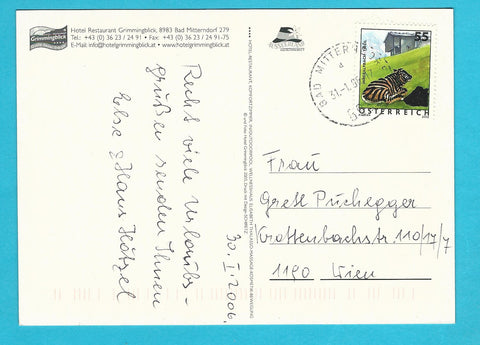 Grimmingblick
Hotel Restaurant Grimmingblick, 8983 Bad Mitterndorf 279
Tel.: +43 (0) 36 23 / 24 91 · Fax: +43 (0) 36 23 / 24 91-75
E-Mail: info@hotelgrimmingblick.at · www.hotelgrimmingblick.at
Recht viele Urlaubs-
grüßen senden Ihnen
Hans Hötzel
30. I. 2006.
BAD MITTERN
31.-1.06-17
55
ÖSTERREICH
Frau
Gretl Puchegger
Krottenbachstr. 110/17/7
1190 Wien